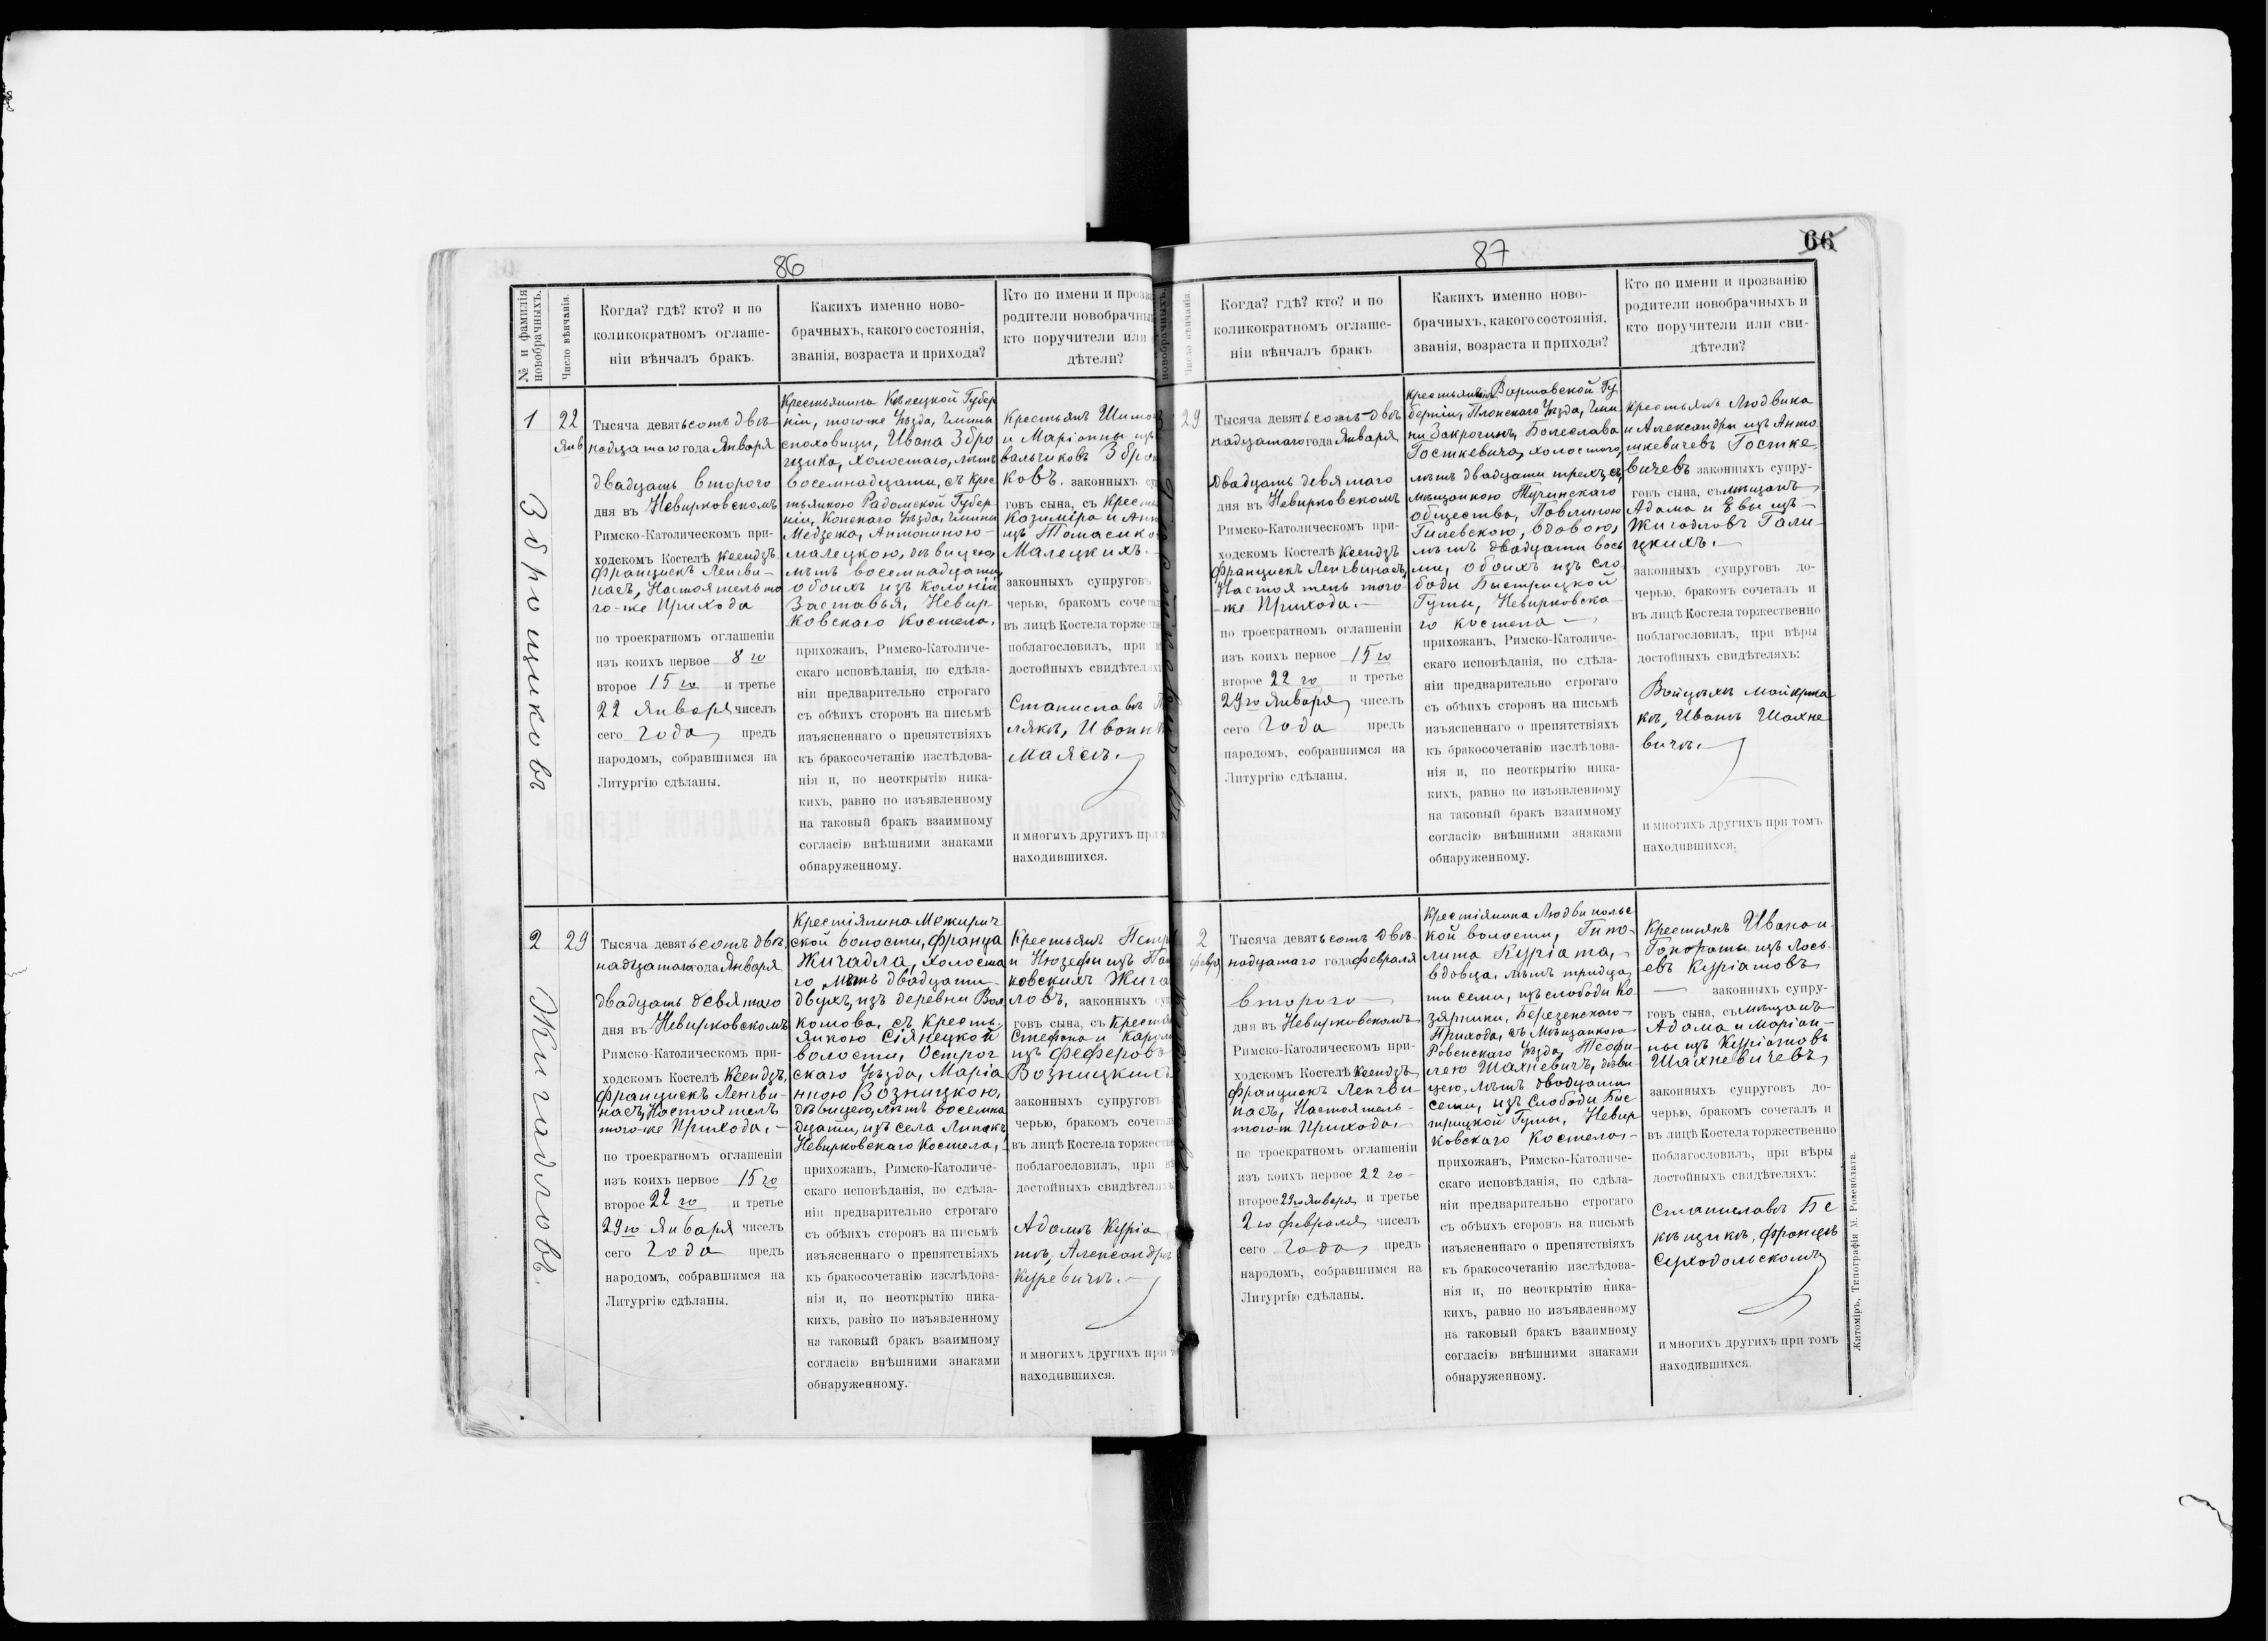 86
№ и фамилія
новобрачныхъ.
Число вѣнчанія.
Когда? гдѣ? кто? и по
коликократномъ оглаше-
ніи вѣнчалъ бракъ.
Какихъ именно ново-
брачныхъ, какого состоянія,
званія, возраста и прихода?
Кто по имени и
родители
кто поручители или
дѣтели?
1
22
Янв
Зброщиковъ
Тысяча девятьсотъ двѣ-
надцатаго года Января
двадцать второго
дня въ Невирковскомъ
Римско-Католическомъ при-
ходскомъ Костелѣ Ксендзъ
Францискъ Ленгви-
насъ, Настоятель то
го-же Прихода
по троекратномъ оглашеніи
изъ коихъ первое 8 го
второе 15 го и третье
22 Января чиселъ
сего года предъ
народомъ, собравшимся на
Литургію сдѣланы.
Крестьянина Кѣлецкой Губер
ніи, тогоже Уѣзда, Гмины
Ивана Збро
щика, холостаго, лѣтъ
восемнадцати, съ Крес
тьянкою Радомской Губер
ніи, Конскаго Уѣзда, Гмины
Медзежа, Антониною
Малецкою, дѣвицею,
лѣтъ восемнадцати,
обоихъ изъ Колоніи
Заставья, Невир-
ковскаго Костела,
прихожанъ, Римско-Католиче-
скаго исповѣданія, по сдѣла-
ніи предварительно строгаго
съ обѣихъ сторонъ на письмѣ
изъясненнаго о препятствіяхъ
къ бракосочетанію изслѣдова-
нія и, по неоткрытію ника-
кихъ, равно по изъявленному
на таковый бракъ взаимному
согласію внѣшними знаками
обнаруженному.
Крестьянъ
и Маріанны изъ
ковъ. законныхъ
говъ сына, съ
Казиміра и
изъ
Малецкихъ.
законныхъ супруговъ
черью, бракомъ
въ лицѣ Костела
поблагословилъ, при
достойныхъ
Станиславъ
лякъ, Иванъ
Маясъ.
и многихъ другихъ при
находившихся.
2
29
Жигадловъ.
Тысяча девятьсотъ двѣ-
надцатаго года Января
двадцать девятаго
дня въ Невирковскомъ
Римско-Католическомъ при-
ходскомъ Костелѣ Ксендзъ,
Францискъ Ленгви-
насъ, Настоятель
того-же Прихода.-
по троекратномъ оглашеніи
изъ коихъ первое 15 го
второе 22 го и третье
29 го Января чиселъ
сего года предъ
народомъ, собравшимся на
Литургію сдѣланы.
Крестіянина Межирич
ской волости, Франца
Жигадла, холоста
го, лѣтъ двадцати
двухъ, изъ деревни Вол
кошова, съ Кресть-
янкою Сіянецкой
волости, Острог
скаго Уѣзда, Маріа
нною Возницкою,
дѣвицею, лѣтъ восемна
дцати, изъ села Липокъ
Невирковскаго Костела,
прихожанъ, Римско-Католиче-
скаго исповѣданія, по сдѣла-
ніи предварительно строгаго
съ обѣихъ сторонъ на письмѣ
изъясненнаго о препятствіяхъ
къ бракосочетанію изслѣдова-
нія и, по неоткрытію ника-
кихъ, равно по изъявленному
на таковый бракъ взаимному
согласію внѣшними знаками
обнаруженному.
Крестьянъ
и Іюзефы изъ
ковскихъ
ловъ, законныхъ
говъ сына, съ
Стефана и
изъ Феферовъ
Возницкихъ
законныхъ супруговъ
черью, бракомъ
въ лицѣ Костела
поблагословилъ, при
достойныхъ
Адамъ Куріа
тъ, Александръ
Куревичъ.
и многихъ другихъ при
находившихся.
87
66
новобрачныхъ.
Число вѣнчанія.
Когда? гдѣ? кто? и по
коликократномъ оглаше-
ніи вѣнчалъ бракъ
Какихъ именно ново-
брачныхъ, какого состоянія,
званія, возраста и прихода?
Кто по имени и прозванію
родители новобрачныхъ и
кто поручители или сви-
дѣтели?
29
Тысяча девятьсотъ двѣ
надцатаго года Января
двадцать девятаго
дня въ Невирковскомъ
Римско-Католическомъ при-
ходскомъ Костелѣ Ксендзъ
Францискъ Ленгвинасъ,
Настоятель того
-же Прихода.-
по троекратномъ оглашеніи
изъ коихъ первое 15 го
второе 22 го и третье
29 го Января чиселъ
сего года предъ
народомъ, собравшимся на
Литургію сдѣланы.
Крестьянина Варшавской Гу
берніи, Плонскаго Уѣзда, Гми
ны Закрочинъ, Болеслава
Госткевича, холостого,
лѣтъ двадцати трехъ, съ
мѣщанкою Тучинскаго
общества, Павлиною
Гилевскою, вдовою,
лѣтъ двадцати вось
ми, обоихъ изъ сло
боды Быстрицкой
Гуты, Невирковска-
го костела
прихожанъ, Римско-Католиче-
скаго исповѣданія, по сдѣла-
ніи предварительно строгаго
съ обѣихъ сторонъ на письмѣ
изъясненнаго о препятствіяхъ
къ бракосочетанію изслѣдова-
нія и, по неоткрытію ника-
кихъ, равно по изъявленному
на таковый бракъ взаимному
согласію внѣшними знаками
обнаруженному.
Крестьянъ Людвика
и Александры изъ Анто
шкевичевъ Гостке-
вичевъ законныхъ супру-
говъ сына, съ мѣщанъ
Адама и Евы изъ
Жигадловъ Гали-
цкихъ.-
законныхъ супруговъ до-
черью, бракомъ сочеталъ и
въ лицѣ Костела торжественно
поблагословилъ, при вѣры
достойныхъ свидѣтеляхъ:
Войцѣхъ Майхржа
къ, Иванъ Шахне
вичъ.
и многихъ другихъ при томъ
находившихся.
2
Февр
Тысяча девятьсотъ двѣ-
надцатаго года Февраля
второго
дня въ Невирковскомъ
Римско-Католическомъ при-
ходскомъ Костелѣ Ксендзъ
Францискъ Ленгви-
насъ, Настоятель
того-ж Прихода.
по троекратномъ оглашеніи
изъ коихъ первое 22 го
второе 29 го Января и третье
2 го Февраля чиселъ
сего года предъ
народомъ, собравшимся на
Литургію сдѣланы.
Крестіянина Людвипольс
кой волости, Гипо-
лита Куріата,
вдовца, лѣтъ тридца
ти семи, изъ слободы Ко
зярники, Березенскаго
Прихода, съ Мѣщанкою
Ровенскаго Уѣзда, Теофи
лею Шахневичъ, дѣви
цею, лѣтъ двадцати
семи, изъ Слободы Быс
трицкой Гуты, Невир
ковскаго Костела,-
прихожанъ, Римско-Католиче-
скаго исповѣданія, по сдѣла-
ніи предварительно строгаго
съ обѣихъ сторонъ на письмѣ
изъясненнаго о препятствіяхъ
къ бракосочетанію изслѣдова-
нія и, по неоткрытію ника-
кихъ, равно по изъявленному
на таковый бракъ взаимному
согласію внѣшними знаками
обнаруженному.
Крестьянъ Ивана и
Гонораты изъ Лось-
евъ Куріатовъ
законныхъ супру-
говъ сына, съ мѣщанъ
Адама и Маріан-
ны изъ Куріатовъ
Шахневичевъ
законныхъ супруговъ до-
черью, бракомъ сочеталъ и
въ лицѣ Костела торжественно
поблагословилъ, при вѣры
достойныхъ свидѣтеляхъ:
Станиславъ Бе
Францъ
Суходольскомъ
и многихъ другихъ при томъ
находившихся.
Житоміръ, Типографія М. Розенблата.